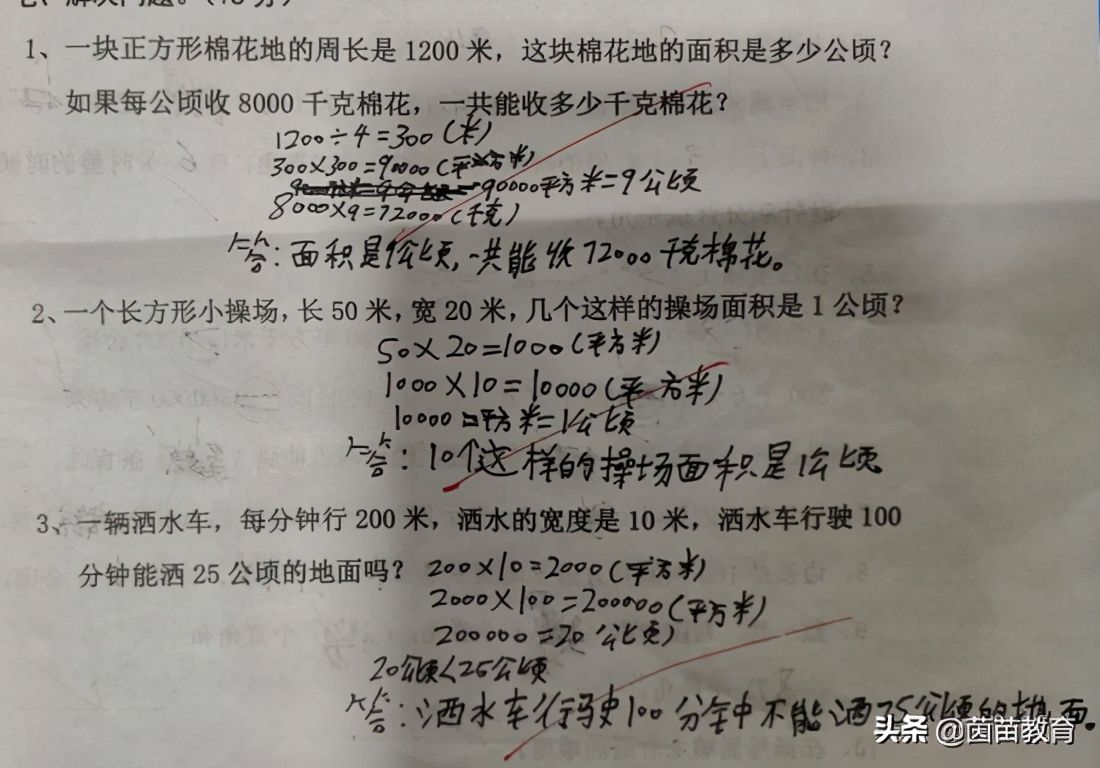 七、解决问题。(18分)
1、一块正方形棉花地的周长是1200米，这块棉花地的面积是多少公顷？
如果每公顷收8000千克棉花，一共能收多少千克棉花？
1200÷4=300(米)
300×300=90000(平方米)
90000平方米=9公顷
8000×9=72000(千克)
答:面积是9公顷,一共能收72000千克棉花。
2、一个长方形小操场，长50米，宽20米，几个这样的操场面积是1公顷？
50×20=1000(平方米)
1000×10=10000(平方米)
10000平方米=1公顷
答:10个这样的操场面积是1公顷
3、一辆洒水车，每分钟行200米，洒水的宽度是10米，洒水车行驶100
分钟能洒25公顷的地面吗？ 200×10=2000(平方米)
2000×100=200000(平方米)
200000=20公顷)
20公顷<25公顷
答:洒水车行驶100分钟不能洒25公顷的地面。
头条 @茵苗教育